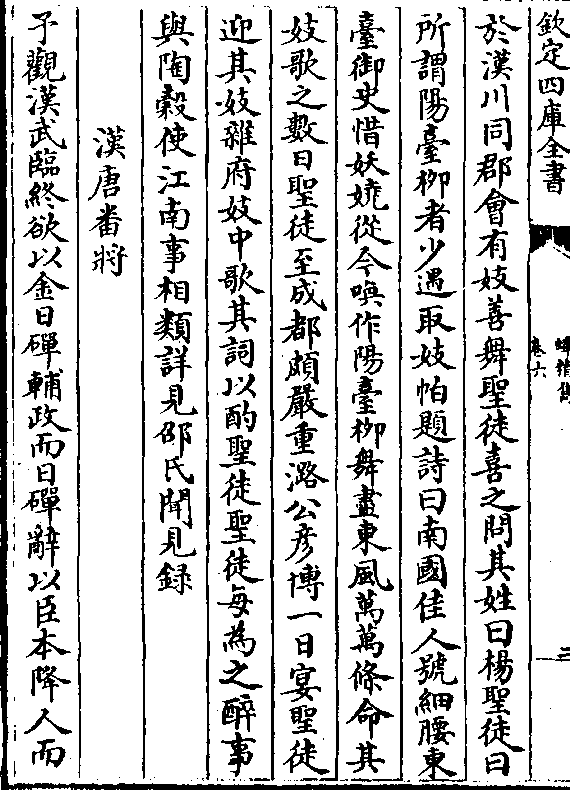 欽定四庫全書
卷六
三
於漢川同郡會有妓善舞聖徒喜之問其姓曰楊聖徒曰
所謂陽臺柳者少遇取妓帕題詩曰南國佳人號細腰東
臺御史惜妖嬈從今喚作陽臺柳舞盡東風萬萬條命其
妓歌之數日聖徒至成都頗嚴重潞公彥博一日宴聖徒
迎其妓雜府妓中歌其詞以酌聖徒聖徒每為之醉事
與陶穀使江南事相類詳見邵氏聞見録
漢唐番將
予觀漢武臨終欲以金日磾輔政而日磾辭以臣本降人而